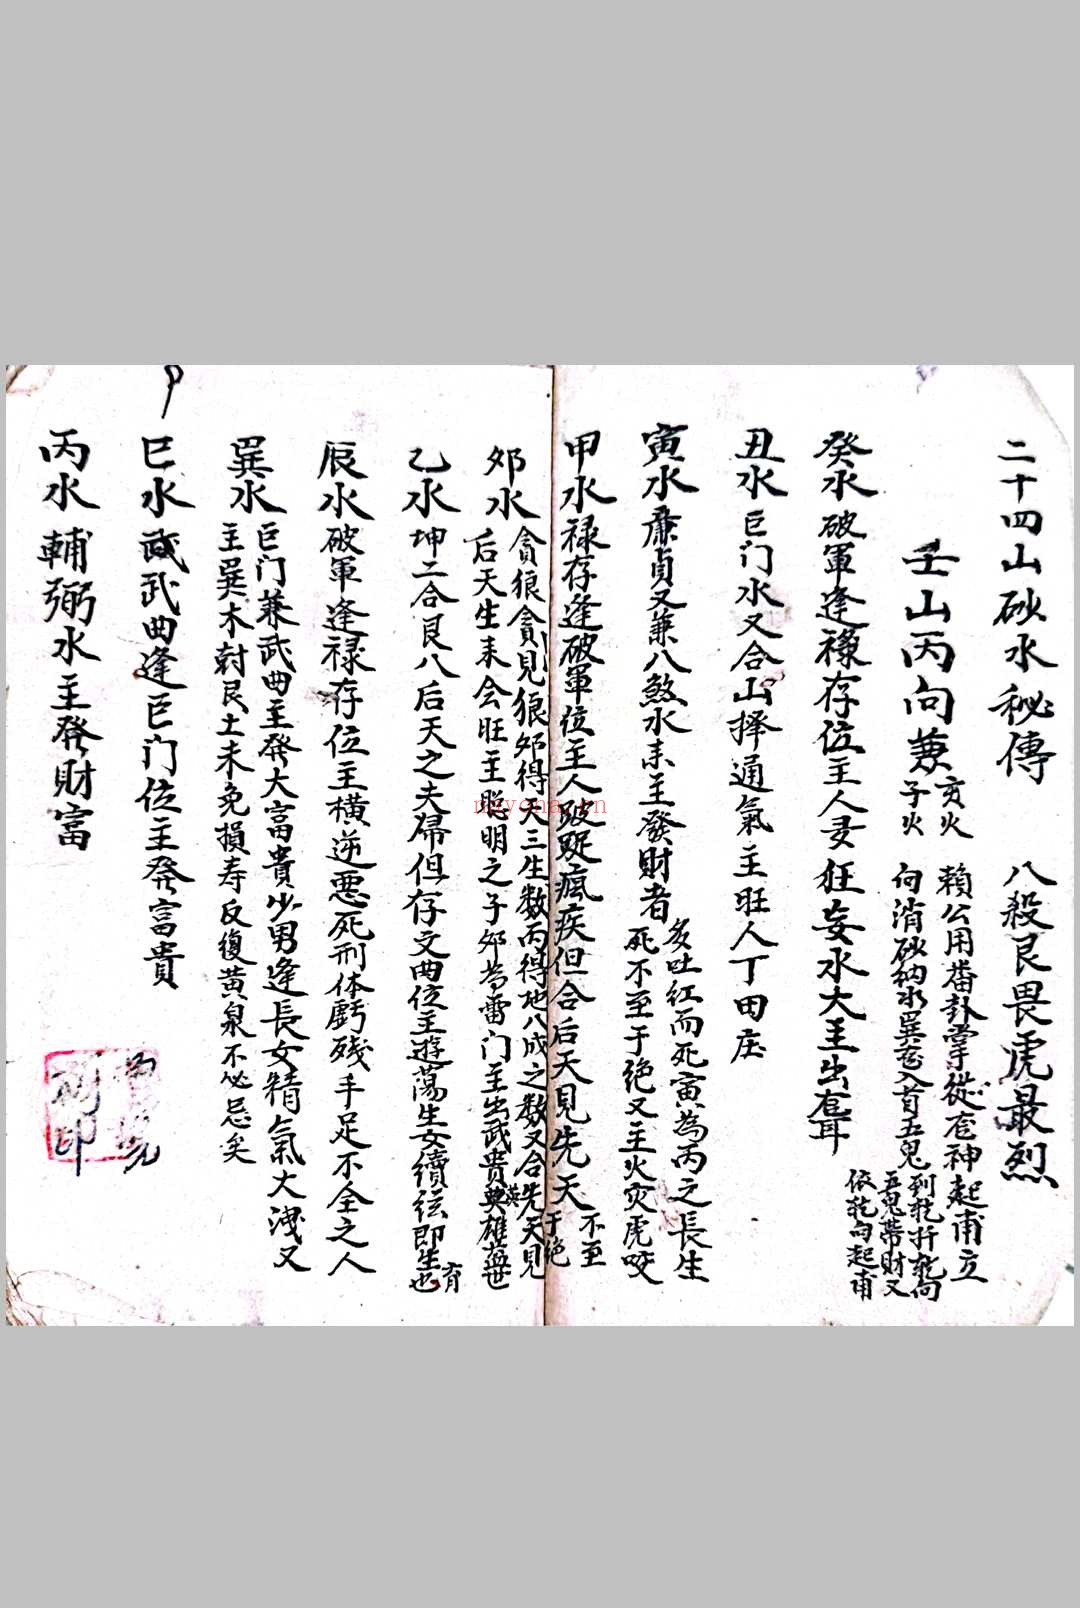 二十四山砂水秘傳 八殺艮畏虎最烈
壬山丙向兼
亥火
子火
賴公用番卦掌從 神起甫立
向消砂納水巽 入首五鬼
到乾折乾向
五鬼帶財又
依乾向起甫
癸水破軍逢祿存位主人 狂妄水大主出 耳
丑水巨门水又合山择通氣主旺人丁田庄
寅水廉貞又兼八煞水耒主發財者
多吐红而死寅為丙之長生
死不至于绝又主火灾虎咬
甲水禄存逢破軍位主人跛 瘋疾但合后天見先天
不至
于绝
夘水
貪狼貪見狼夘得天三生数丙得地八成之数又合先天見
后天生耒会旺主聪明之子夘为雷门主出武贵英雄盖世
乙水坤二合艮八后天之夫婦但存文曲位主遊蕩生女續弦即生也
有
辰水破軍逢禄存位主横逆悪死刑体虧残手足不全之人
巽水
巨门兼武曲主発大富貴少男逢長女精氣大洩又
主巽木尅艮土未免損寿反復黄泉不必忌矣
巳水武曲逢巨门位主発富貴
丙水輔弼水主發財富
nayona.cn